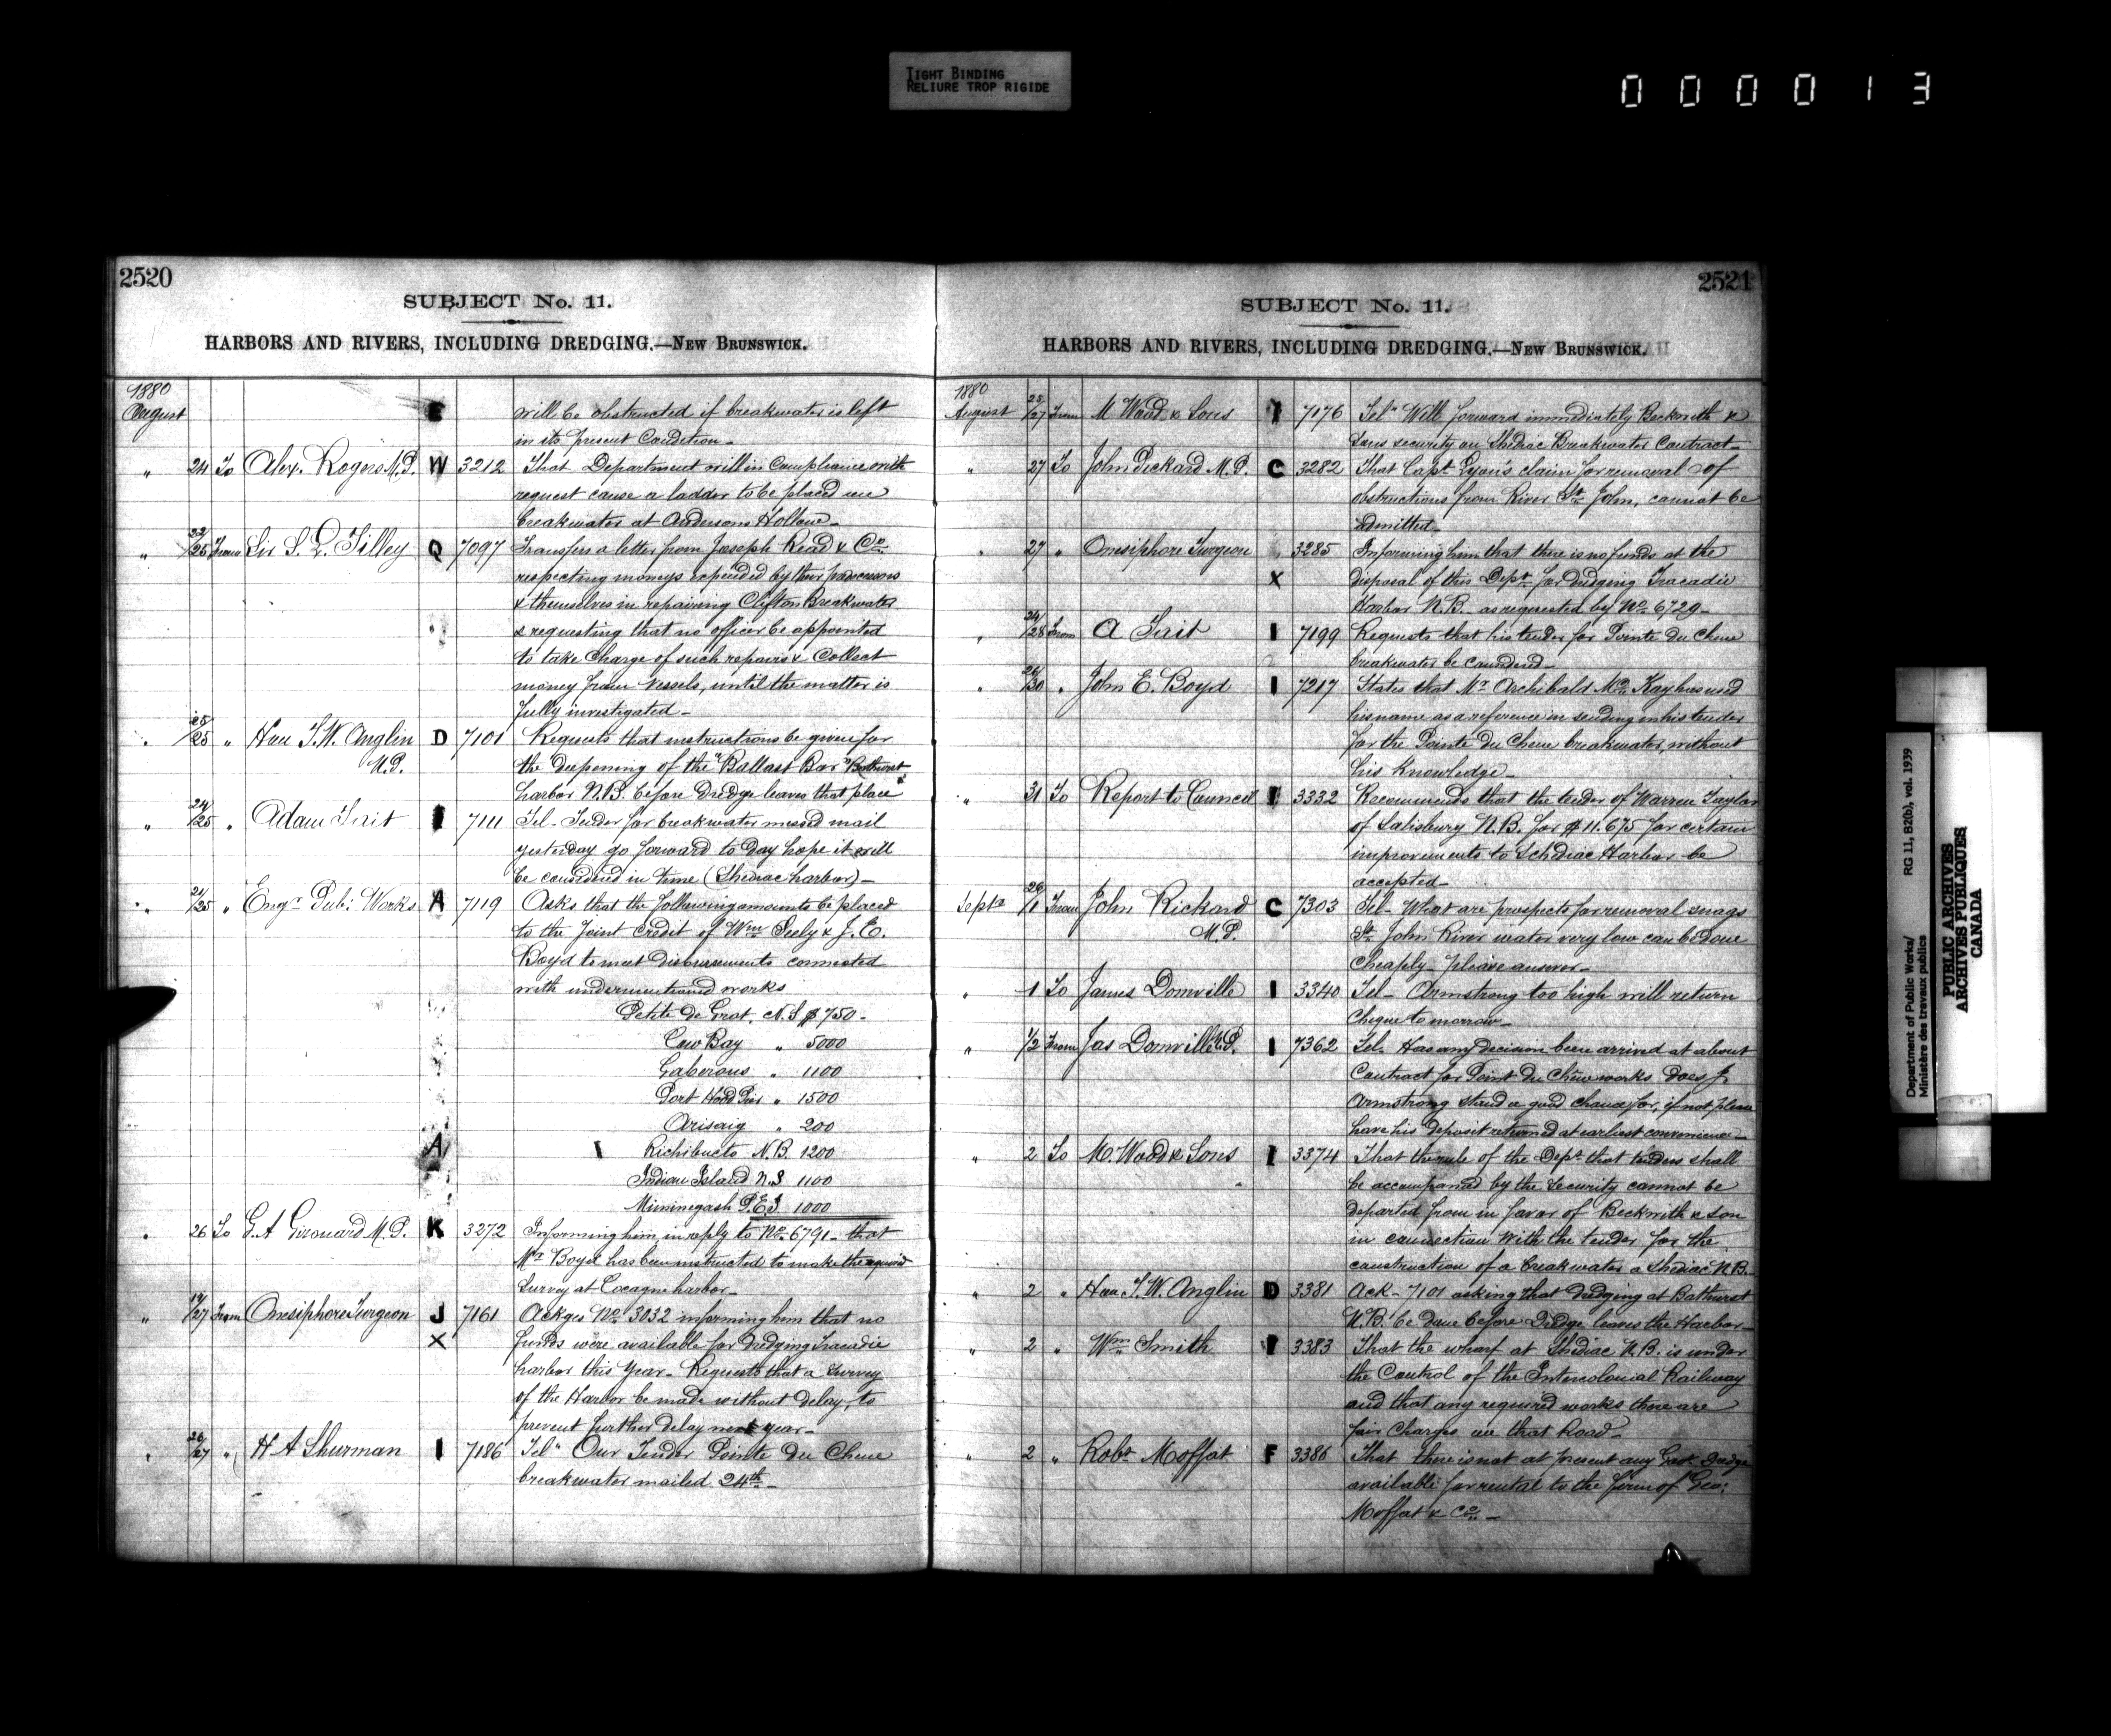 TIGHT BINDING
RELIURE TROP RIGIDE
000013
2520
SUBJECT No. 11.
HARBORS AND RIVERS, INCLUDING DREDGING.—NEW BRUNSWICK.
1880
August E will be obstructed if breakwater is left
in its present Condition_
" 24 To Alex. Rogers M.P. W 3212 That Department will in Compliance with
request cause a ladder to be placed on
breakwater at Andersons Hollow_
" 22/25 From Sir S. L. Tilley Q 7097 Transfers a letter from Joseph Read & Co
respecting moneys expended by their predecessors
& themselves in repairing Clifton Breakwater
& requesting that no officer be appointed
to take Charge of such repairs & Collect
money from vessels, until the matter is
fully investigated_
" 25/25 " Hon T. W. Anglin D 7101 Requests that instructions be given for
M.P. the deepening of the "Ballast Bar" Bathurst
harbor N.B. before Dredge leaves that place
" 24/25 " Adam Tait I 7111 Tel_ Tender for breakwater missed mail
yesterday go forward to day hope it will
be considered in time (Shediac harbor)_
" 21/25 " Engr Pub: Works A 7119 Asks that the following amounts be placed
to the Joint Credit of Wm Seely & J. E.
Boyd to meet disbursements connected
with undermentioned works
Petite de Grat. N.S $750-
Cow Bay " 5000
Gaberous " 1100
Port Hood Pier " 1500
Arisaig " 200
A I Richibucto N.B. 1200
Indian Island N.S 1100
Miminegash P.E.I. 1000
" 26 To G. A Girouard M.P. K 3272 Informing him in reply to No 6791_ that
Mr Boyd has been instructed to make the required
Survey at Cocagne harbor_
" 19/27 From Onesiphore Turgeon J 7161 Ackges No 3032 informing him that no
X funds were available for dredging Tracadie
harbor this Year_ Requests that a Survey
of the Harbor be made without delay, to
prevent further delay next year_
" 26/27 " H A Shurman I 7186 Tel" Our Tender Pointe Du Chene
breakwater mailed 24th_
2521
SUBJECT No. 11.
HARBORS AND RIVERS, INCLUDING DREDGING.—NEW BRUNSWICK.
1880
August 25/27 From M Wood & Sons I 7176 Tel" Will forward immediately Beckwith &
Sons security on Shediac Breakwater Contract_
" 27 To John Pickard M.P. C 3282 That Capt Lyon's claim for removal of
obstructions from River St John, cannot be
admitted_
" 27 " Onesiphore Turgeon 3285 Informing him that there is no funds at the
X disposal of this Dept for dredging Tracadie
Harbor N.B. as requested by No 6729_
" 24/28 From A Tait I 7199 Requests that his tender for Pointe Du Chene
breakwater be considered_
" 26/30 " John E. Boyd I 7217 States that Mr Archibald McKay has used
his name as a reference in sending in his tender
for the Pointe Du Chene breakwater, without
his Knowledge_
" 31 To Report to Council I 3332 Recommends that the tender of Warren Taylor
of Salisbury N.B. for $11.675 for certain
improvements to Schediac Harbor be
accepted_
Septr 26/1 From John Pickard C 7303 Tel_ What are prospects for removal snags
M.P. St John River water very low can be done
Cheaply_ please answer_
" 1 To James Domville I 3340 Tel_ Armstrong too high will return
Cheque tomorrow_
" 1/2 From Jas Domville M.P. I 7362 Tel. Has any decision been arrived at about
Contract for Point Du Chene works Does J.
Armstrong stand a good chance for, if not please
have his deposit returned at earliest convenience_
" 2 To M. Wood & Sons I 3374 That the rule of the Dept that tenders shall
be accompanied by the Security cannot be
departed from in favor of Beckwith & Son
in connection with the tender for the
construction of a breakwater a Shediac N.B.
" 2 " Hon T. W. Anglin D 3381 Ack_ 7101 asking that dredging at Bathurst
N.B. be done before Dredge leaves the Harbor_
" 2 " Wm Smith I 3383 That the wharf at Shediac N.B. is under
the Control of the Intercolonial Railway
and that any required works there are
fair Charges on that Road_
" 2 " Robt Moffat F 3386 That there is not at present any Govt Dredge
available for rental to the firm of Geo:
Moffat & Co_
Department of Public Works/
Ministère des travaux publics
RG 11, B2(b), vol. 1939
PUBLIC ARCHIVES
ARCHIVES PUBLIQUES
CANADA